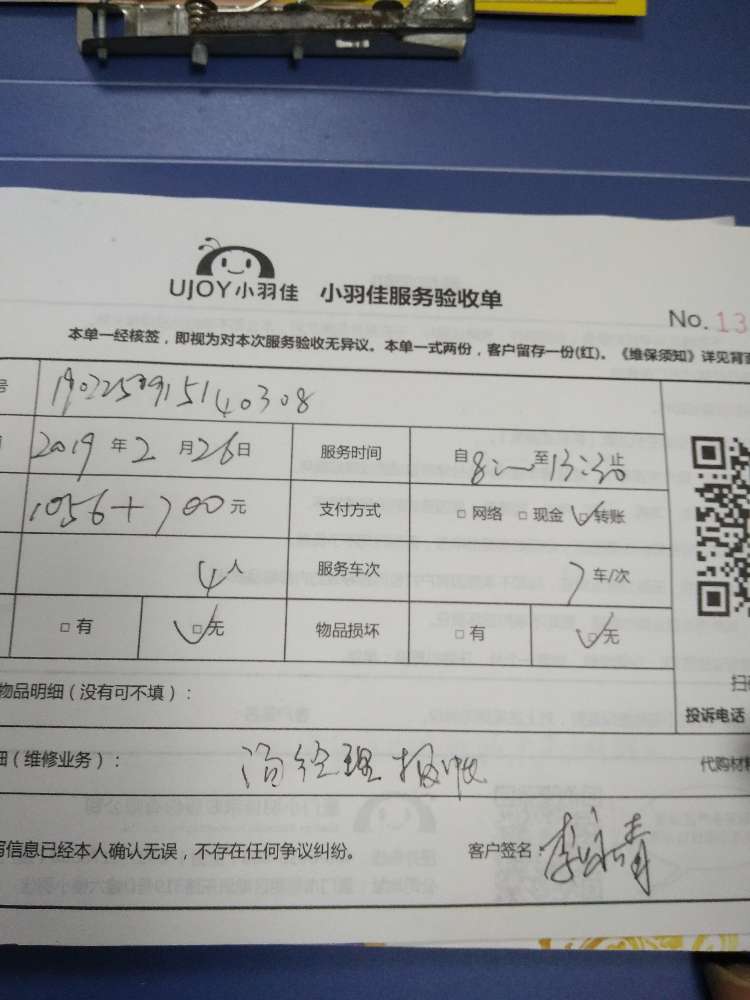 UJOY小羽佳 小羽佳服务验收单
No. 13
本单一经核签，即视为对本次服务验收无异议。本单一式两份，客户留存一份(红)。《维保须知》详见背面
号
2019年2月26日 服务时间 自8:—至13:30止
1056+700元 支付方式 □网络 □现金 □转账
4人 服务车次 7车/次
□有 □无 物品损坏 □有 □无
物品明细（没有可不填）：
扫
投诉电话
细（维修业务）： 经理
代购材料
写信息已经本人确认无误，不存在任何争议纠纷。 客户签名：